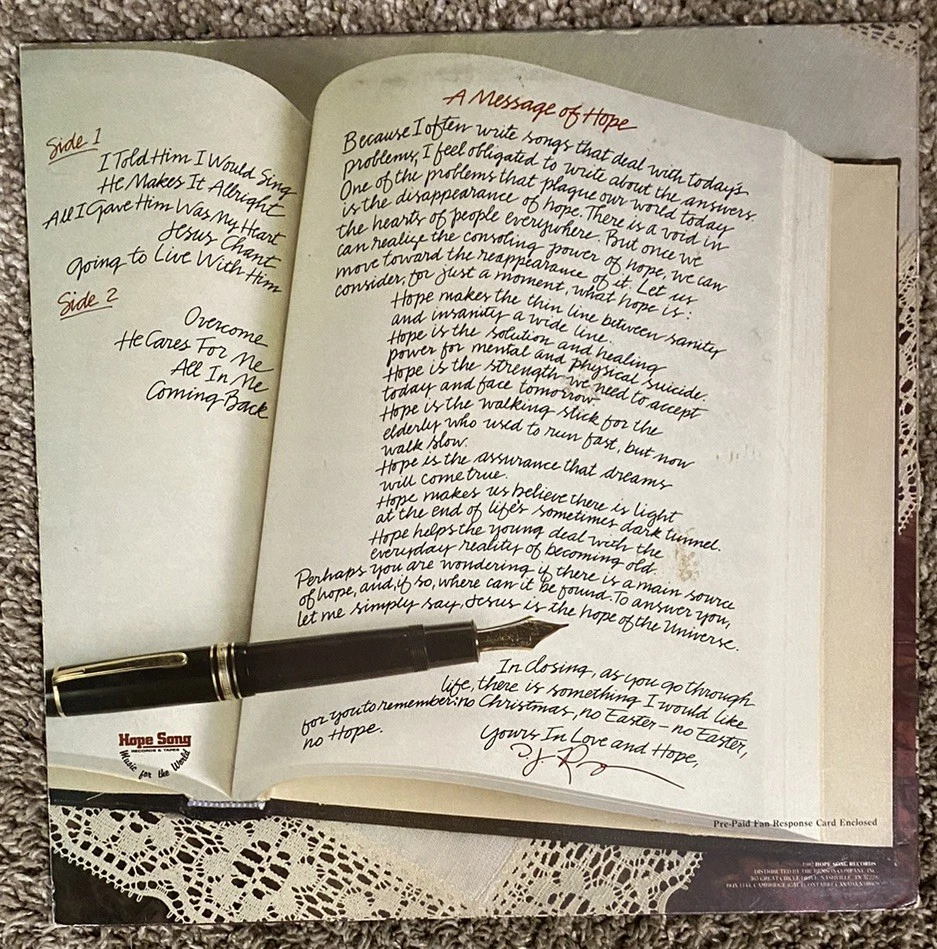 Side 1
I Told Him I Would Sing
He Makes It Allright
All I Gave Him Was My Heart
Jesus Chant
Going to Live With Him
Side 2
Overcome
He Cares For Me
All In Me
Coming Back
A Message of Hope
Because I often write songs that deal with today's
problems, I feel obligated to write about the answers.
One of the problems that plague our world today
is the disappearance of hope. There is a void in
the hearts of people everywhere. But once we
can realize the consoling power of hope, we can
move toward the reappearance of it. Let us
consider, for just a moment, what hope is:
Hope makes the thin line between sanity
and insanity a wide line.
Hope is the solution and healing
power for mental and physical suicide.
Hope is the strength we need to accept
today and face tomorrow.
Hope is the walking stick for the
elderly who used to run fast, but now
walk slow.
Hope is the assurance that dreams
will come true.
Hope makes us believe there is light
at the end of life's sometimes dark tunnel.
Hope helps the young deal with the
everyday reality of becoming old.
Perhaps you are wondering if there is a main source
of hope, and, if so, where can it be found. To answer you,
let me simply say, Jesus is the hope of the Universe.
In closing, as you go through
life, there is something I would like
for you to remember: no Christmas, no Easter – no Easter,
no Hope.
Yours In Love and Hope,
Hope Song
RECORDS & TAPES
Music for the World
Pre-Paid Fan Response Card Enclosed
HOPE SONG RECORDS
DISTRIBUTED BY THE BENSON COMPANY, INC.
365 GREAT CIRCLE DRIVE, NASHVILLE, TN 37228